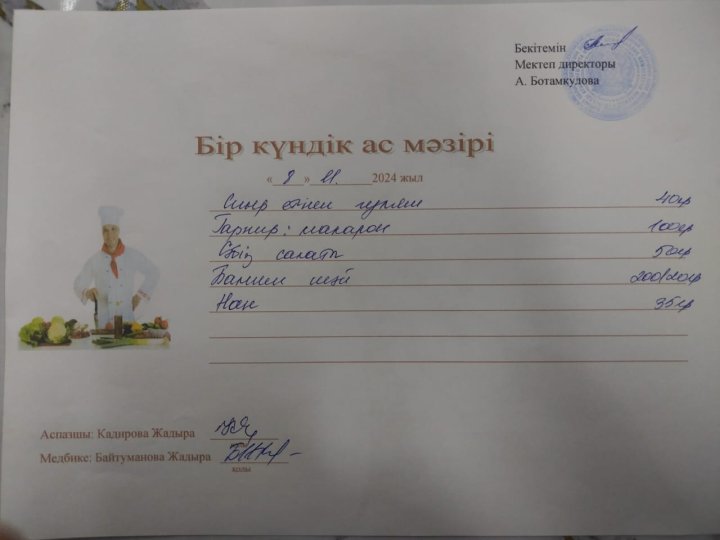 Бекітемін
Мектеп директоры
А. Ботамкудова
Бір күндік ас мәзірі
« 8 » 11. 2024 жыл
Сиыр етінен гуляш 40гр
Гарнир: макарон 100гр
Сәбіз салаты 50гр
Балмен шәй 200/20гр
Нан 35гр
Аспазшы: Кадирова Жадыра
Медбике: Байтуманова Жадыра
қолы